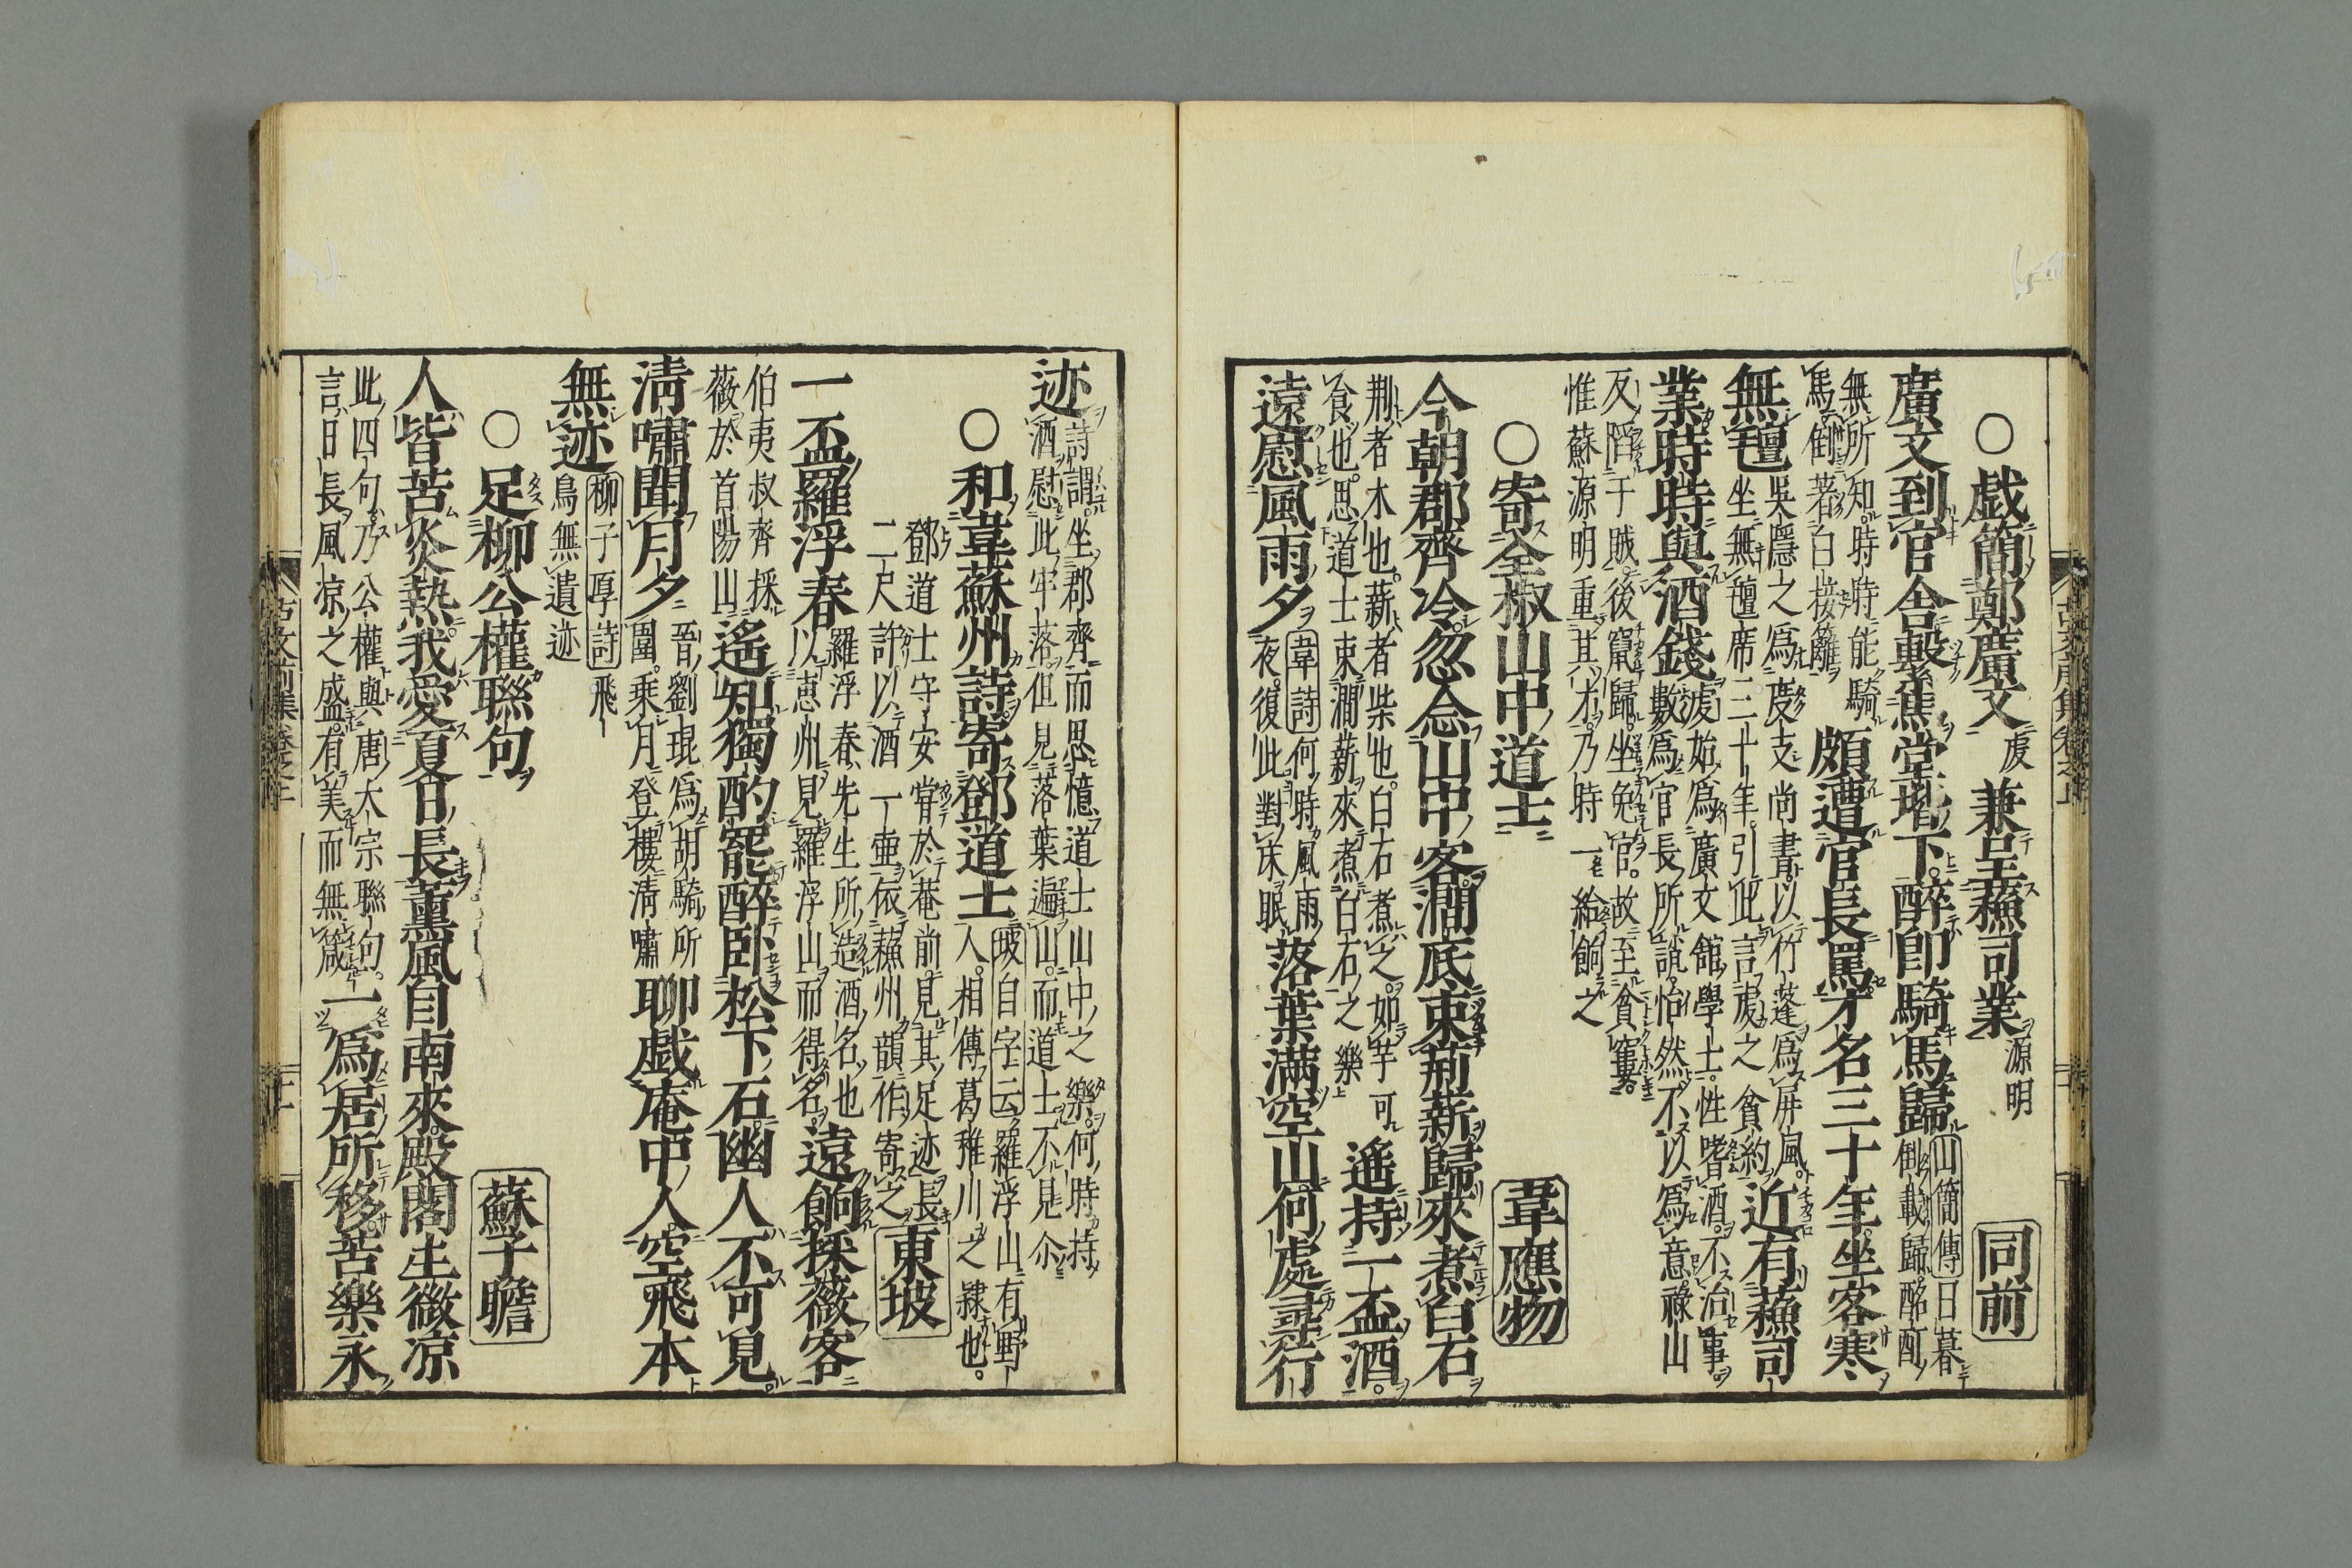 ○戯簡鄭廣文虔兼呈蘓司業源明 同前
廣文到官舎繫馬堂堦下醉卽騎馬歸山簡傳曰暮倒載歸酩酊
無所知時時能騎馬倒著白接籬頗遭官長罵才名三十年坐客寒
無氊吳隱之爲度支尚書以竹蓬爲屏風坐無氊席三十年引此言虔之貧約近有蘓司
業時時與酒錢虔始爲廣文館學士性嗜酒不治事數爲官長所誚怡然不以爲意祿山
反陷于賊後竄歸坐免官故至貧窶惟蘇源明重其才乃時一給餉之
○寄全椒山中道士 韋應物
今朝郡齋冷忽念山中客澗底束荊薪歸來煮白石
荆者木也薪者柴也白石煮之如芋可食也思道士束澗薪來煮白石之樂遥持一盃酒
遠慰風雨夕韋詩何時風雨夜復此對床眠落葉滿空山何處尋行
迹詩謂坐郡齋而思憶道士山中之樂何時持酒慰此牢落但見落葉遍山而道士不見尒
○和韋蘇州詩寄鄧道士坡自字云羅浮山有野人相傳葛稚川之隸也
鄧道士守安甞於菴前見其足迹長二尺許以酒一壷依蘓州韻作寄之東坡
一盃羅浮春羅浮春先生所造酒名也以恵州見羅浮山而得名遠餉採薇客
伯夷叔齊採薇於首陽山遙知獨酌罷醉臥松下石幽人不可見
淸嘯聞月夕晉劉琨爲胡騎所圍乘月登樓淸嘯聊戯庵中人空飛本
無迹柳子厚詩飛鳥無遺迹
○足柳公權聯句 蘇子瞻
人皆苦炎熱我愛夏日長薰風自南來殿閣生微凉
此四句乃公權與唐太宗聯句言日長風凉之盛有美而無箴一爲居所移苦樂永
古文前集